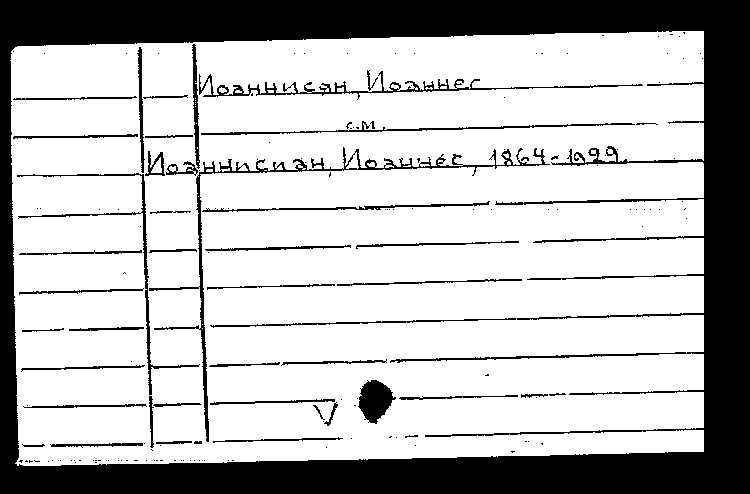 Иоаннисян, Иоаннес
см.
Иоаннисиан, Иоаннес, 1864-1929.
V